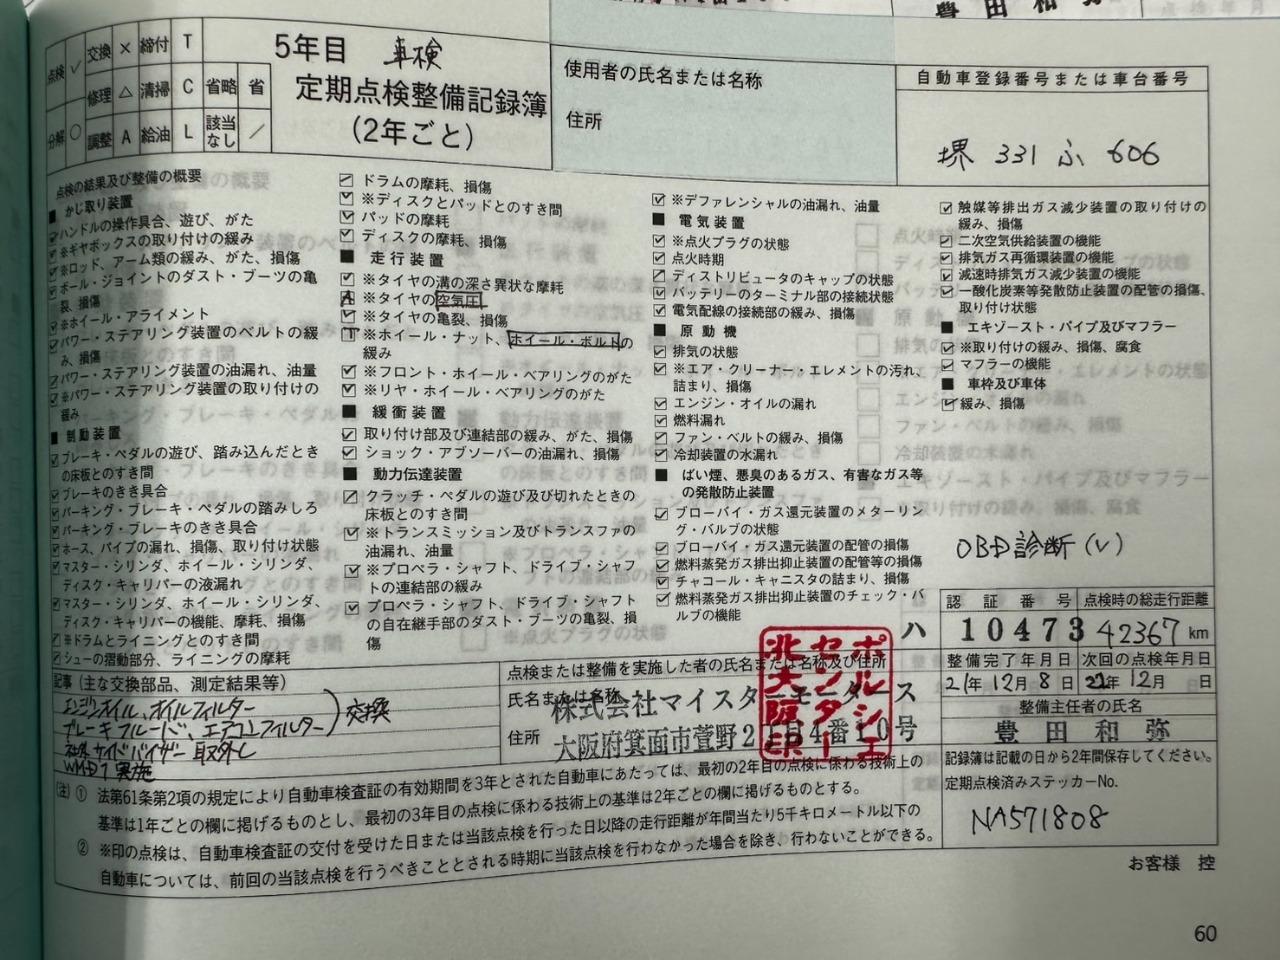 豊田和弥
点検 ✓ 交換 × 締付 T
修理 △ 清掃 C 省略 省
分解 ○ 調整 A 給油 L 該当なし /
5年目 車検
定期点検整備記録簿
(2年ごと)
使用者の氏名または名称
住所
自動車登録番号または車台番号
堺 331 ふ 606
点検の結果及び整備の概要
■ かじ取り装置
ハンドルの操作具合、遊び、がた
※ギヤボックスの取り付けの緩み
※ロッド、アーム類の緩み、がた、損傷
ボール・ジョイントのダスト・ブーツの亀
裂、損傷
※ホイール・アライメント
パワー・ステアリング装置のベルトの緩
み、損傷
パワー・ステアリング装置の油漏れ、油量
※パワー・ステアリング装置の取り付けの
緩み
■ 制動装置
ブレーキ・ペダルの遊び、踏み込んだとき
の床板とのすき間
ブレーキのきき具合
パーキング・ブレーキ・ペダルの踏みしろ
パーキング・ブレーキのきき具合
ホース、パイプの漏れ、損傷、取り付け状態
マスター・シリンダ、ホイール・シリンダ、
ディスク・キャリパーの液漏れ
マスター・シリンダ、ホイール・シリンダ、
ディスク・キャリパーの機能、摩耗、損傷
※ドラムとライニングとのすき間
シューの摺動部分、ライニングの摩耗
ドラムの摩耗、損傷
※ディスクとパッドとのすき間
パッドの摩耗
ディスクの摩耗、損傷
■ 走行装置
※タイヤの溝の深さ異状な摩耗
A ※タイヤの空気圧
※タイヤの亀裂、損傷
T ※ホイール・ナット、ホイール・ボルトの
緩み
※フロント・ホイール・ベアリングのがた
※リヤ・ホイール・ベアリングのがた
■ 緩衝装置
取り付け部及び連結部の緩み、がた、損傷
ショック・アブソーバーの油漏れ、損傷
■ 動力伝達装置
クラッチ・ペダルの遊び及び切れたときの
床板とのすき間
※トランスミッション及びトランスファの
油漏れ、油量
※プロペラ・シャフト、ドライブ・シャフト
の連結部の緩み
プロペラ・シャフト、ドライブ・シャフト
の自在継手部のダスト・ブーツの亀裂、損
傷
※デファレンシャルの油漏れ、油量
■ 電気装置
※点火プラグの状態
点火時期
ディストリビュータのキャップの状態
バッテリーのターミナル部の接続状態
電気配線の接続部の緩み、損傷
■ 原動機
排気の状態
※エア・クリーナー・エレメントの汚れ、
詰まり、損傷
エンジン・オイルの漏れ
燃料漏れ
ファン・ベルトの緩み、損傷
冷却装置の水漏れ
■ ばい煙、悪臭のあるガス、有害なガス等
の発散防止装置
ブローバイ・ガス還元装置のメターリン
グ・バルブの状態
ブローバイ・ガス還元装置の配管の損傷
燃料蒸発ガス排出抑止装置の配管等の損傷
チャコール・キャニスタの詰まり、損傷
燃料蒸発ガス排出抑止装置のチェック・バ
ルブの機能
触媒等排出ガス減少装置の取り付けの
緩み、損傷
二次空気供給装置の機能
排気ガス再循環装置の機能
減速時排気ガス減少装置の機能
一酸化炭素等発散防止装置の配管の損傷、
取り付け状態
■ エキゾースト・パイプ及びマフラー
※取り付けの緩み、損傷、腐食
マフラーの機能
■ 車枠及び車体
緩み、損傷
OBD診断(✓)
認証番号 点検時の総走行距離
ハ 10473 42367 km
整備完了年月日 次回の点検年月日
21年 12月 8日 22年 12月 日
整備主任者の氏名
豊田和弥
記録簿は記載の日から2年間保存してください。
定期点検済みステッカーNo.
NA571808
記事(主な交換部品、測定結果等)
エンジンオイル、オイルフィルター
ブレーキフルード、エアコンフィルター )交換
社外サイドバイザー 取外し
実施
点検または整備を実施した者の氏名または名称及び住所
氏名または名称
株式会社マイスターモータース
住所
大阪府箕面市菅野2丁目4番10号
ポルシェ
センター
北大阪
(注) ① 法第61条第2項の規定により自動車検査証の有効期間を3年とされた自動車にあたっては、最初の2年目の点検に係わる技術上の
基準は1年ごとの欄に掲げるものとし、最初の3年目の点検に係わる技術上の基準は2年ごとの欄に掲げるものとする。
② ※印の点検は、自動車検査証の交付を受けた日または当該点検を行った日以降の走行距離が年間当たり5千キロメートル以下の
自動車については、前回の当該点検を行うべきこととされる時期に当該点検を行わなかった場合を除き、行わないことができる。
お客様 控
60